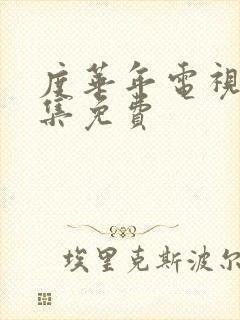 度華年電視
集免費
埃里克斯波尔